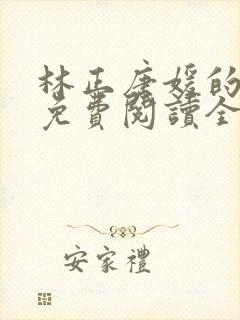 林正唐媛的
免費閱讀全
安家禮